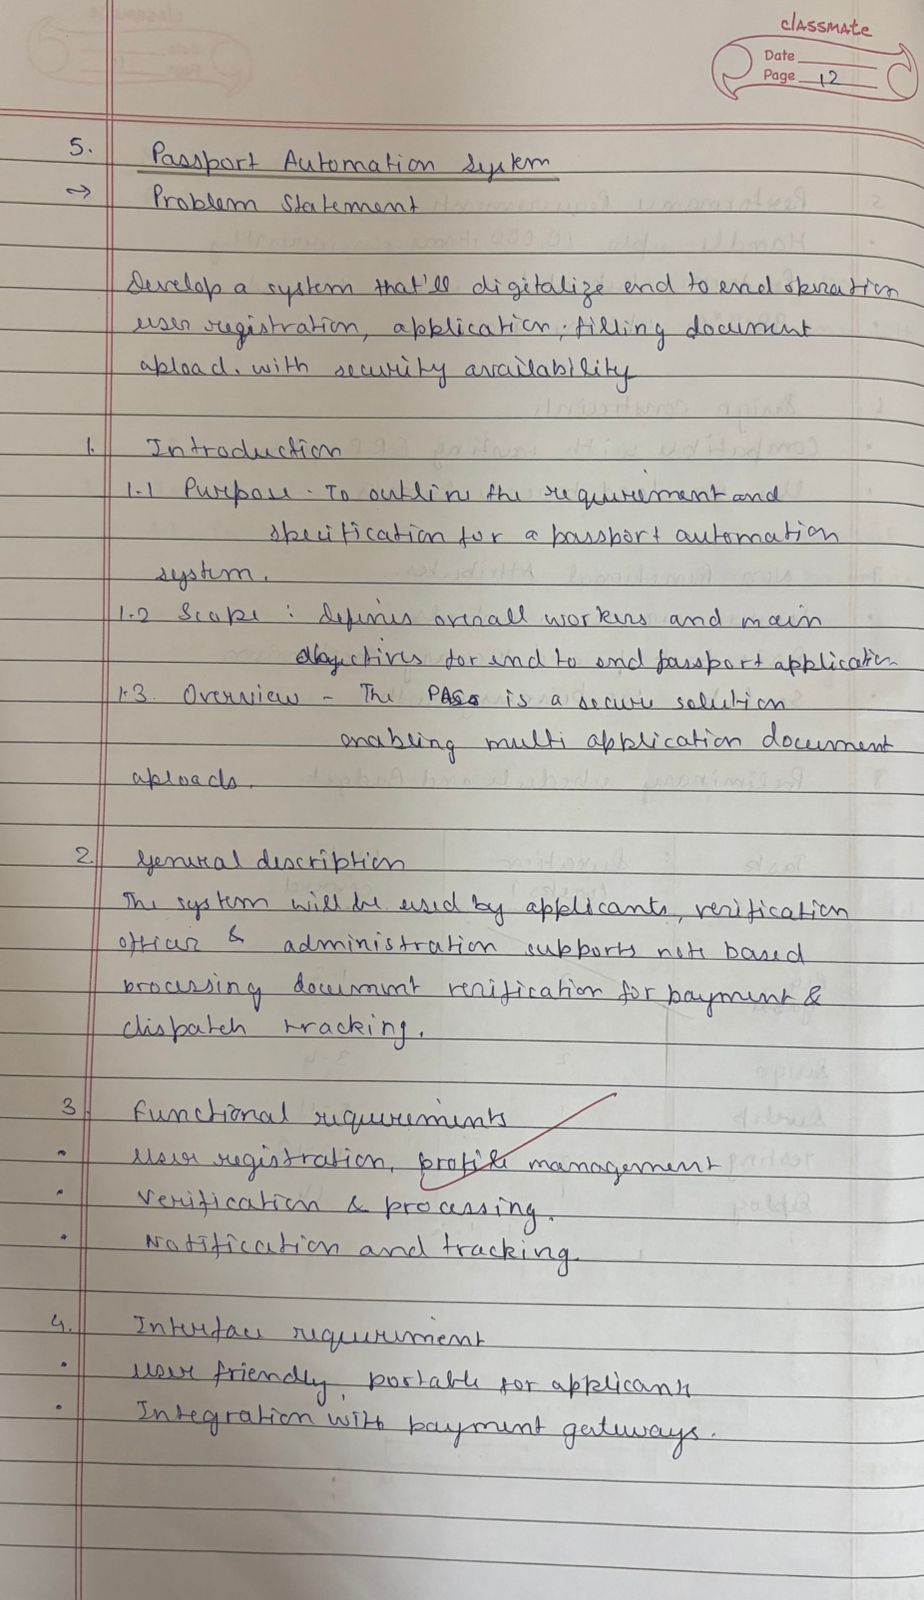 classmate
Date
Page 12
5. Passport Automation System
→ Problem Statement
Develop a system that'll digitalize end to end operation
user registration, application, filling document
upload. with security availability
1. Introduction
1.1 Purpose - To outline the requirement and
specification for a passport automation
system.
1.2 Scope : defines overall workers and main
objectives for end to end passport application
1.3. Overview - The PAS is a secure solution
enabling multi application document
uploads.
2. General description
The system will be used by applicants, verification
officer & administration supports note based
processing document verification for payment &
dispatch tracking.
3. Functional requirements
• User registration, profile management
• Verification & processing.
• Notification and tracking.
4. Interface requirement
• User friendly, portable for applicants
• Integration with payment gateways.